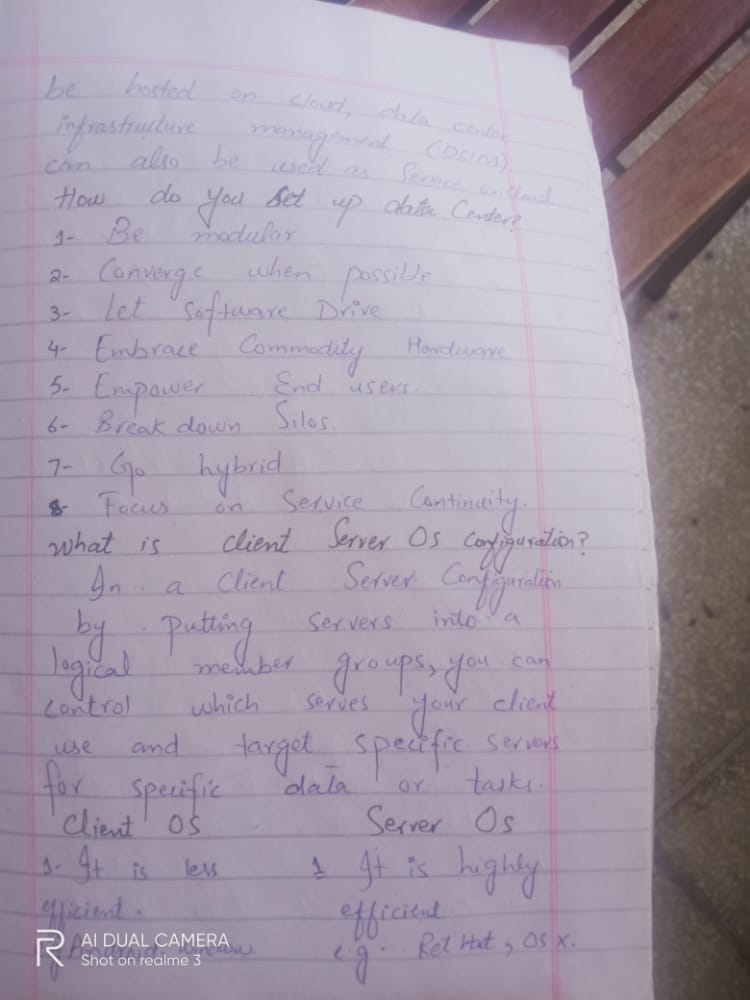 be hosted on cloud, data center
infrastructure management (DCIM)
can also be used as Service on Cloud
How do you set up data Center?
1- Be modular
2- Converge when possible
3- Let Software Drive
4- Embrace Commodity Hardware
5- Empower End users.
6- Break down Silos.
7- Go hybrid
8- Focus on Service Continuity.
What is client Server Os configuration?
In a Client Server Configuration
by putting servers into a
logical member groups, you can
control which serves your client
use and target specific servers
for specific data or tasks.
Client OS Server Os
1- It is less 1 It is highly
efficient. efficient
Android e.g. Ret Hat, OS X.
R AI DUAL CAMERA
Shot on realme 3